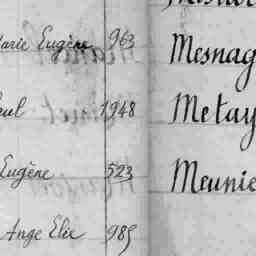 Marie Eugène 963 Mesnag
1948 Metay
Eugène 523 Meunie
Ange Elie 985